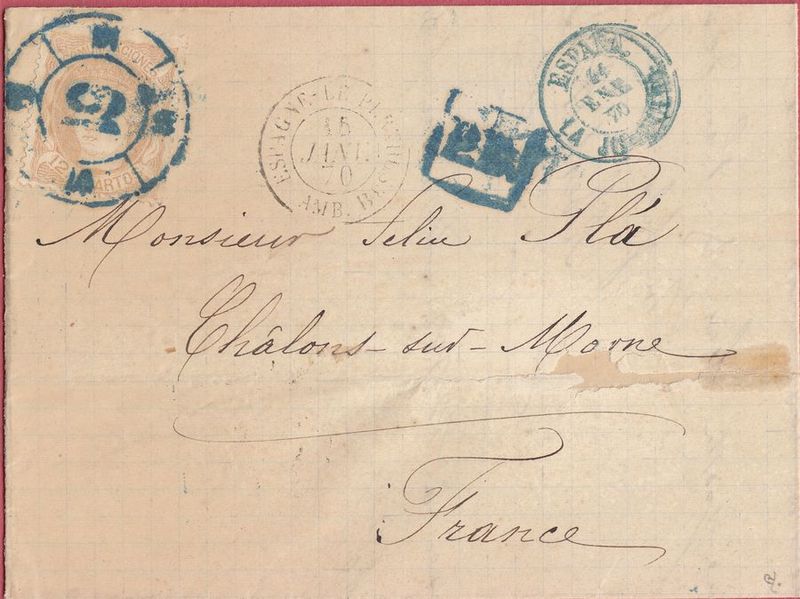 2
ESPAGNE-LE PERTHUS
15
JANV.
70
AMB. B
ESPAÑA
14
ENE
70
LA JU
Monsieur Feliu Plá
Châlons-sur-Marne
France